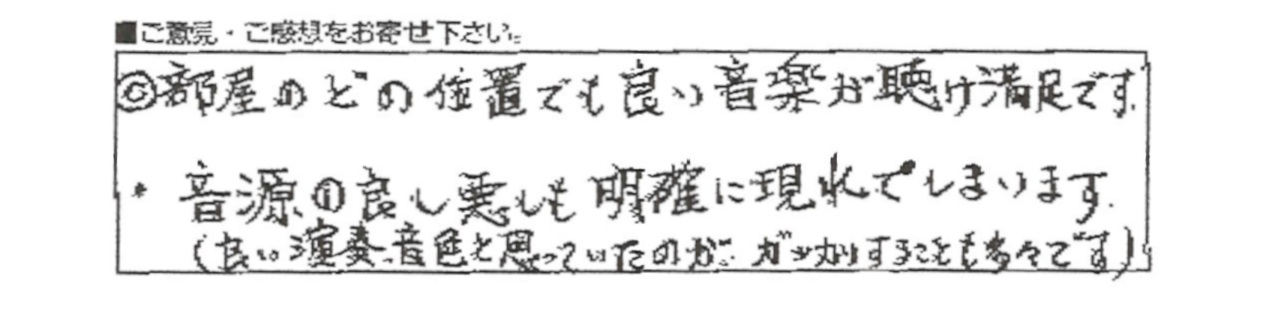 ■ご意見・ご感想をお寄せ下さい。
◎部屋のどの位置でも良い音楽が聴け満足です.
* 音源の良し悪しも明確に現れてしまいます.
(良い演奏、音色と思っていたのが、ガッカリすることも多々です)